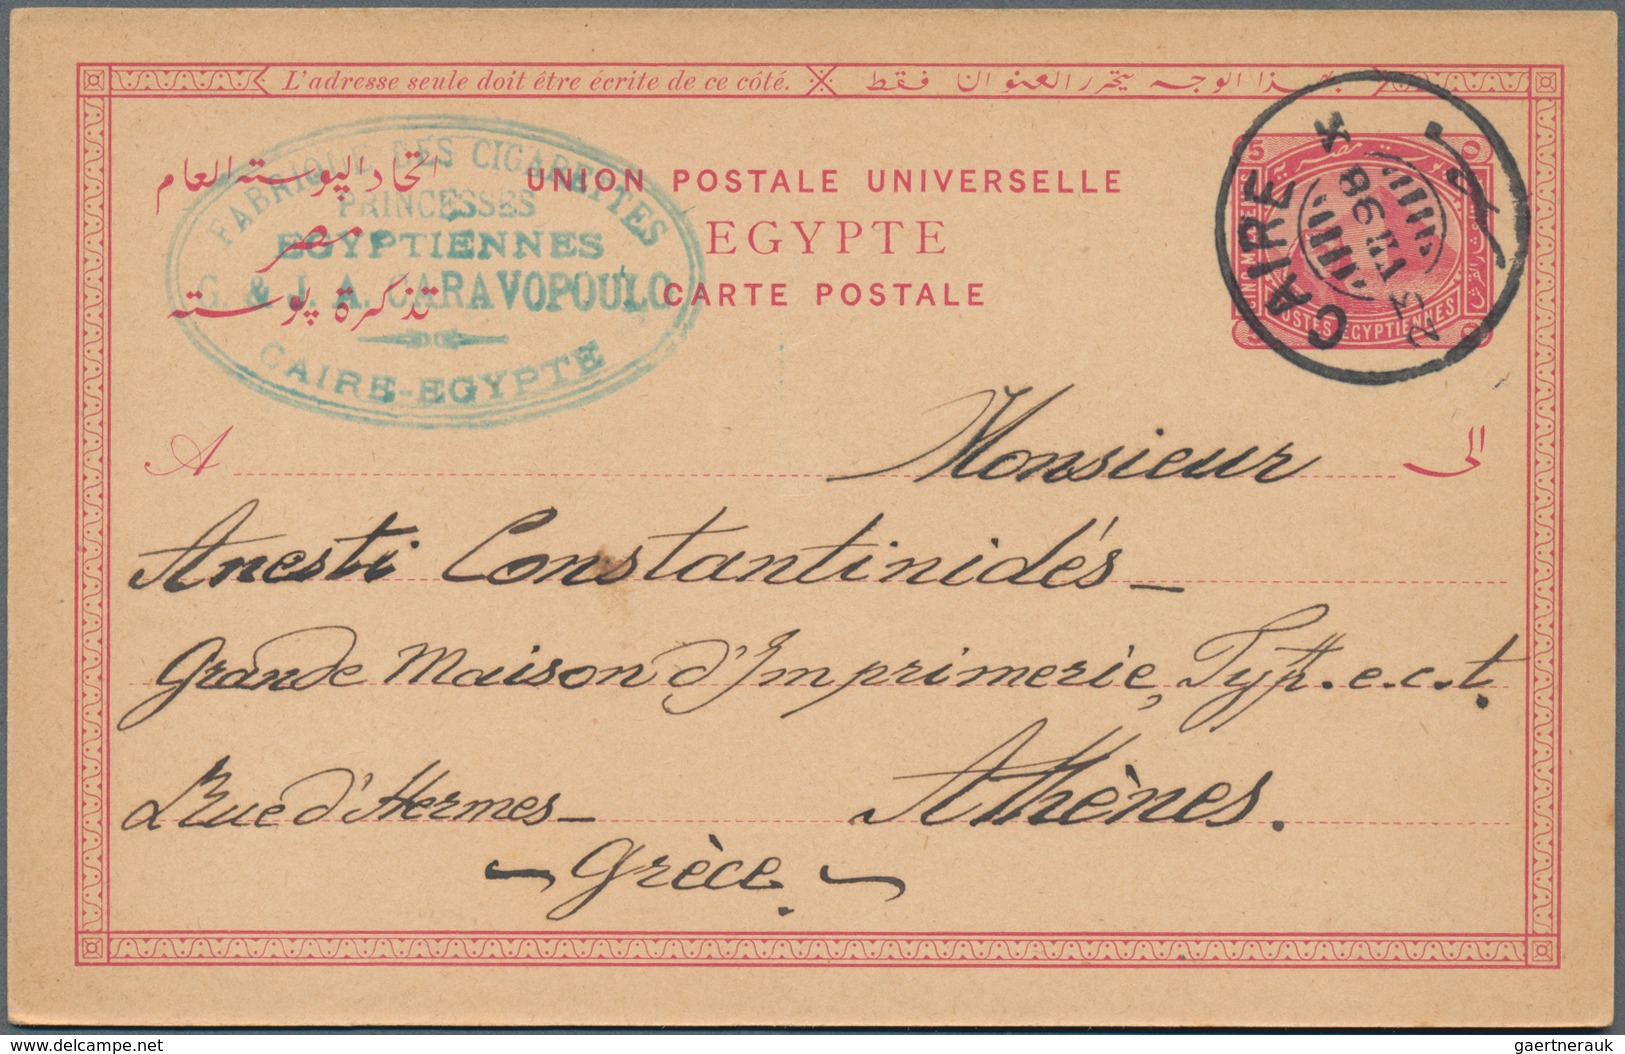 L'adresse seule doit être écrite de ce côté. بهذا الوجه يتحرر العنوان فقط
اتحاد البوسته العام
UNION POSTALE UNIVERSELLE
مصر
EGYPTE
تذكرة بوسته
CARTE POSTALE
FABRIQUE DES CIGARETTES
PRINCESSES
EGYPTIENNES
G. & J. A. CARAVOPOULO
CAIRE-EGYPTE
CAIRE
98
5
POSTES EGYPTIENNES
A Monsieur الى
Anesti Constantinidés
Grande Maison d'Imprimerie, Typ. e.c.t.
Rue d'Hermes Athènes.
Grèce.
gaertnerauk